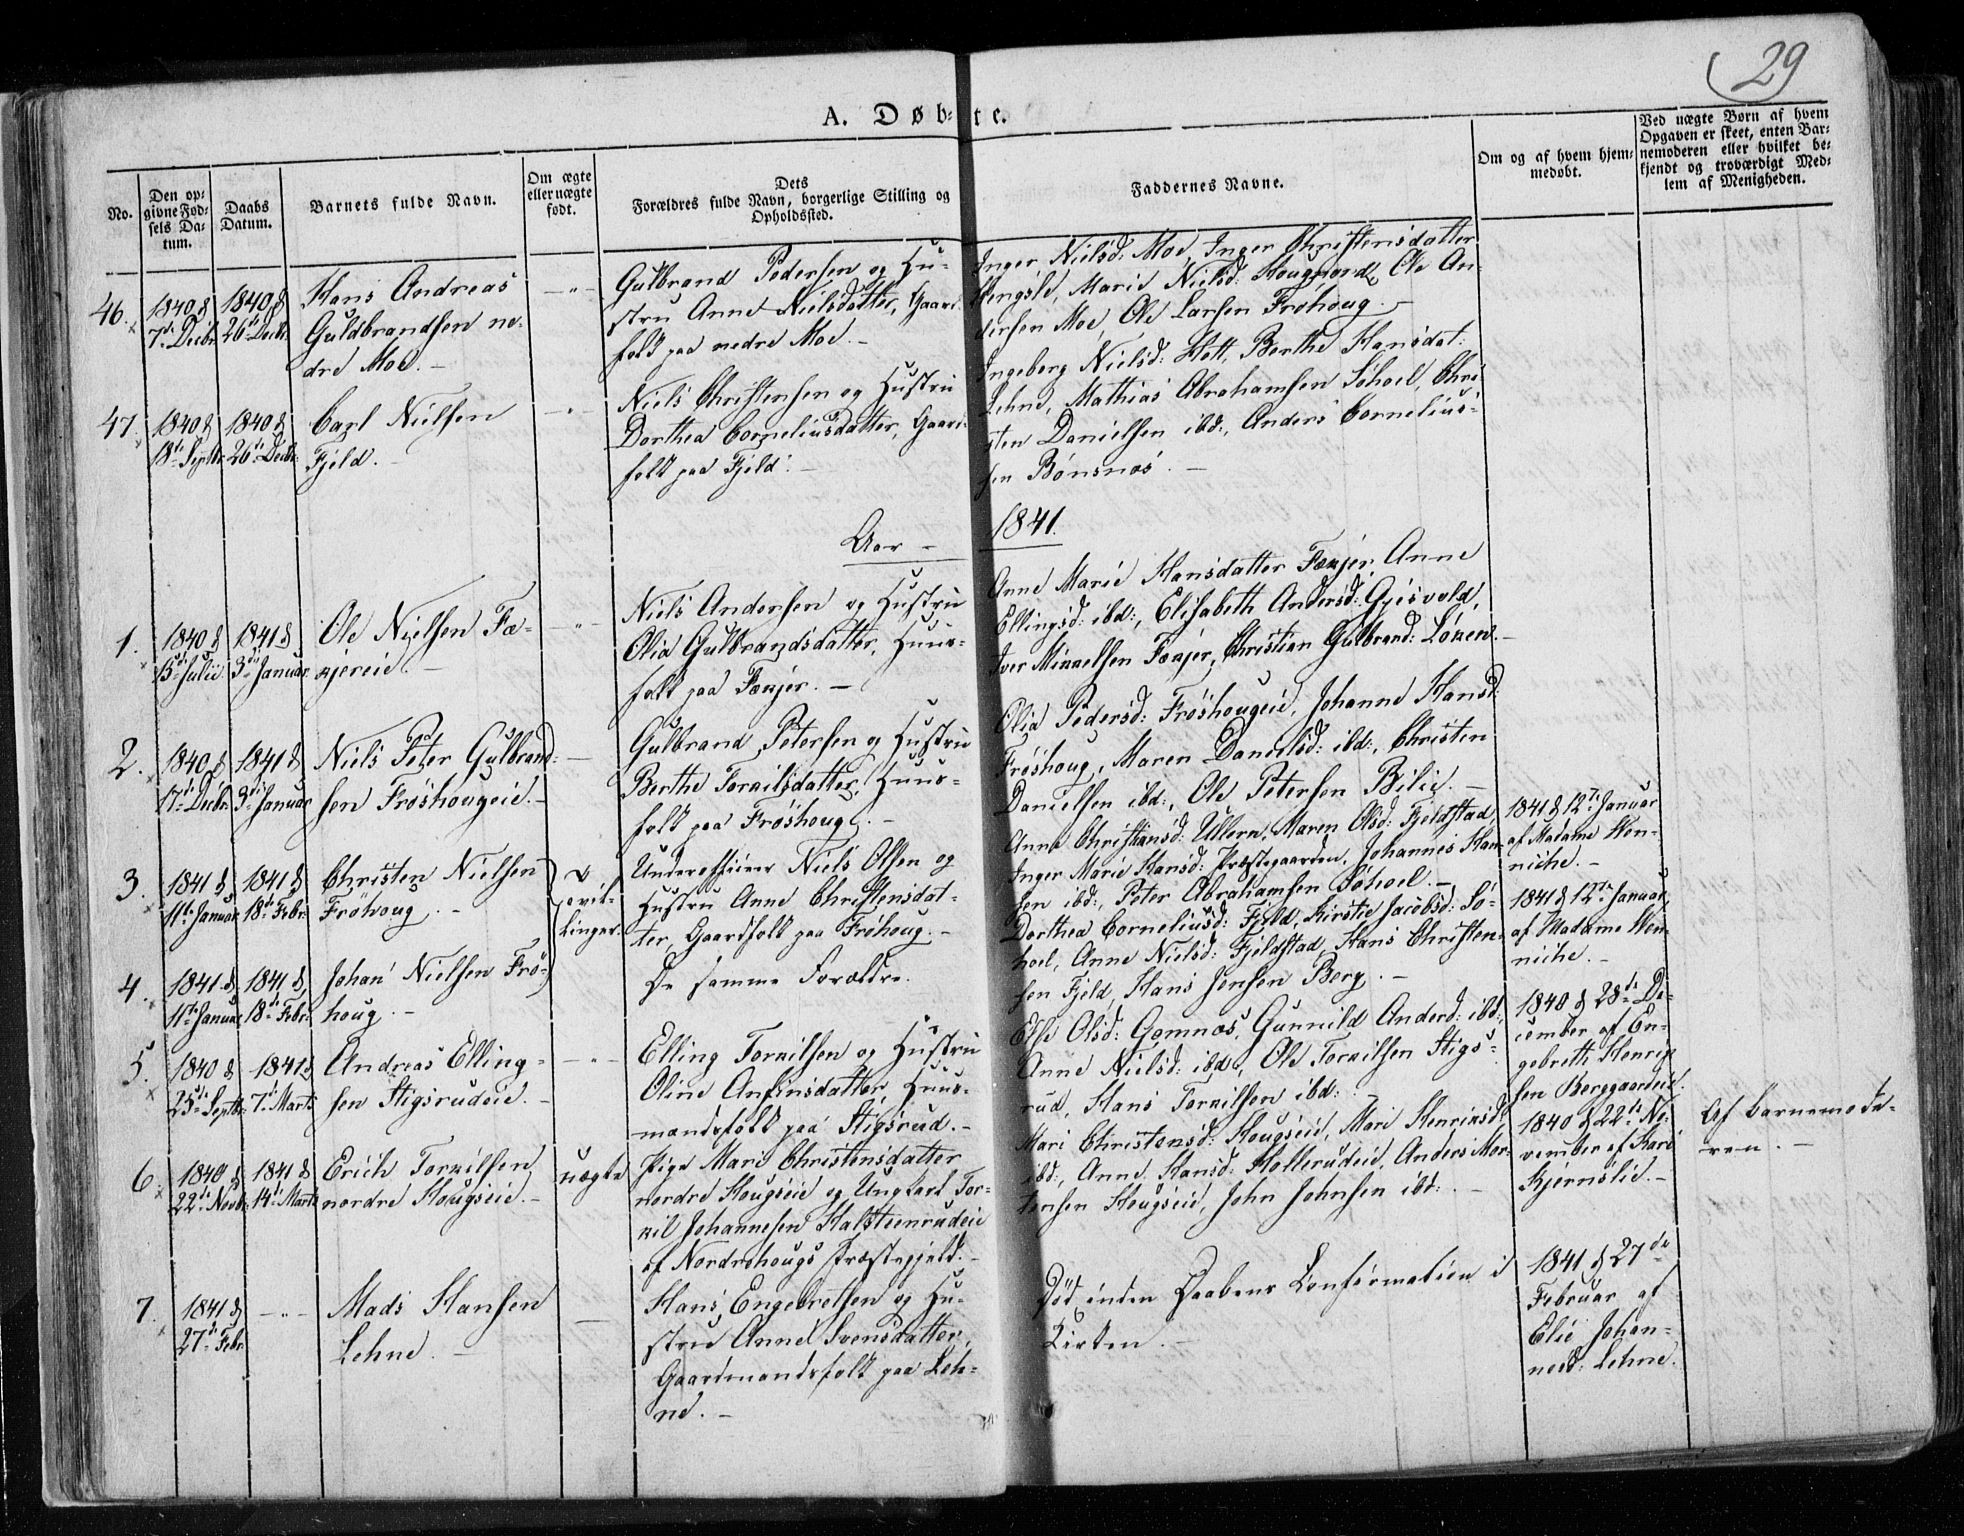 29
A. Døbte.
No.
Den opgivne Fødsels Datum.
Daabs Datum.
Barnets fulde Navn.
Om ægte eller uægte født.
Dets Forældres fulde Navn, borgerlige Stilling og Opholdssted.
Faddernes Navne.
Om og af hvem hjemmedøbt.
Ved uægte Børn af hvem Opgaven er skeet, enten Barnemoderen eller hvilket bekjendt og troværdigt Medlem af Menigheden.
46.
1840 d
7de Decbr
1840 d
26de Decbr
Hans Andreas
Guldbrandsen ne-
dre Moe. -
- " -
Gulbrand Pedersen og Hu-
stru Anne Nielsdatter, Gaard-
folk paa nedre Moe. -
Inger Nielsd: Moe, Inger Christensdatter
Hengsle, Marie Nielsd: Hougnord, Ole An-
dersen Moe, Ole Larsen Frøhoug. -
47.
1840 d
18de Septbr
1840 d
26de Decbr
Carl Nielsen
Fjeld. -
- " -
Niels Christensen og Hustru
Dorthea Corneliusdatter, Gaard-
folk paa Fjeld. -
Ingeborg Nielsd: Hett, Berthe Hansdat:
Lehne, Mathias Abrahamsen Søhoel, Chri-
sten Danielsen ibd:, Anders Cornelius-
sen Bønsnæs. -
Aar - 1841.
1.
1840 d
15de Julii
1841 d
3de Januar
Ole Nielsen Fæ-
kjereie. -
- " -
Niels Andersen og Hustru
Olia Gulbrandsdatter, Huus-
folk paa Fækjer. -
Anne Marie Hansdatter Fækjer, Anne
Ellingsd: ibd:, Elisabeth Andersd: Gjesvold,
Iver Mikkelsen Fækjer, Christian Gulbrand: Løken. -
2.
1840 d
17de Decbr.
1841 d
3de Januar
Niels Peter Gulbrand-
sen Frøshougeie. -
-
Gulbrand Petersen og Hustru
Berthe Torkilsdatter, Huus-
folk paa Frøshoug. -
Olia Pedersd: Frøshougeie, Johanne Hansd:
Frøshoug, Maren Danielsd: ibd:, Christen
Danielsen ibd:, Ole Petersen Bilie. -
3.
1841 d
11te Januar
1841 d
18de Febr.
Christen Nielsen
Frøhoug. -
Tvil-
linger.
Underofficeer Niels Olsen og
Hustru Anne Christensdat-
ter, Gaardfolk paa Frøhoug. -
Anne Christiansd: Ullern, Maren Olsd: Fjeldstad,
Inger Marie Hansd: Præstegaarden, Johannes Han-
sen ibd:, Peter Abrahamsen Søhoel. -
1841 d 12te Januar
af Madame Hen-
niche. -
4.
1841 d
11te Januar
1841 d
18de Febr.
Johan Nielsen Frø-
houg. -
De samme Forældre.
Dorthea Corneliusd: Fjeld, Kirstie Jacobsd: Sø-
hoel, Anne Nielsd: Fjeldstad, Hans Christen-
sen Fjeld, Hans Jensen Berg. -
1841 d 12te Januar
af Madame Hen-
niche. -
5.
1840 d
25de Septbr
1841 d
7de Marts
Andreas Elling-
sen Stigsrudeie. -
- " -
Elling Torkilsen og Hustru
Oline Anfinsdatter, Huus-
mandsfolk paa Stigsrud. -
Else Olsd: Gomnæs, Gunnild Andersd: ibd:,
Anne Nielsd: ibd:, Ole Torkilsen Stigs-
rud, Hans Torkilsen ibd:
1840 d 28de De-
cember af En-
gebreth Henrik-
sen Berggaardeie.
6.
1840 d
22de Novbr
1841 d
14de Marts
Erich Torkilsen
nordre Hougseie. -
uægte
Pige Mari Christensdatter
nordre Hougseie og Ungkarl Tor-
kil Johannesen Halsteenrudeie
af Norderhougs Præstegjeld. -
Mari Christensd: Hougseie, Mari Henriksd:
ibd:, Anne Hansd: Hollerudeie, Anders Mor-
tensen Hougseie, John Johnsen ibd: -
1840 d 22de No-
vember af Kari
Kjernslie. -
Af Barnemode-
ren. -
7.
1841 d
27de Febr
- " -
Mads Hansen
Lehne. -
-
Hans Engebretsen og Hu-
stru Anne Svensdatter,
Gaardmandsfolk paa Leh-
ne. -
Død inden Daabens Confirmation i
Kirken. -
1841 d 27de
Februar af
Elie Johan-
nesd: Lehne.